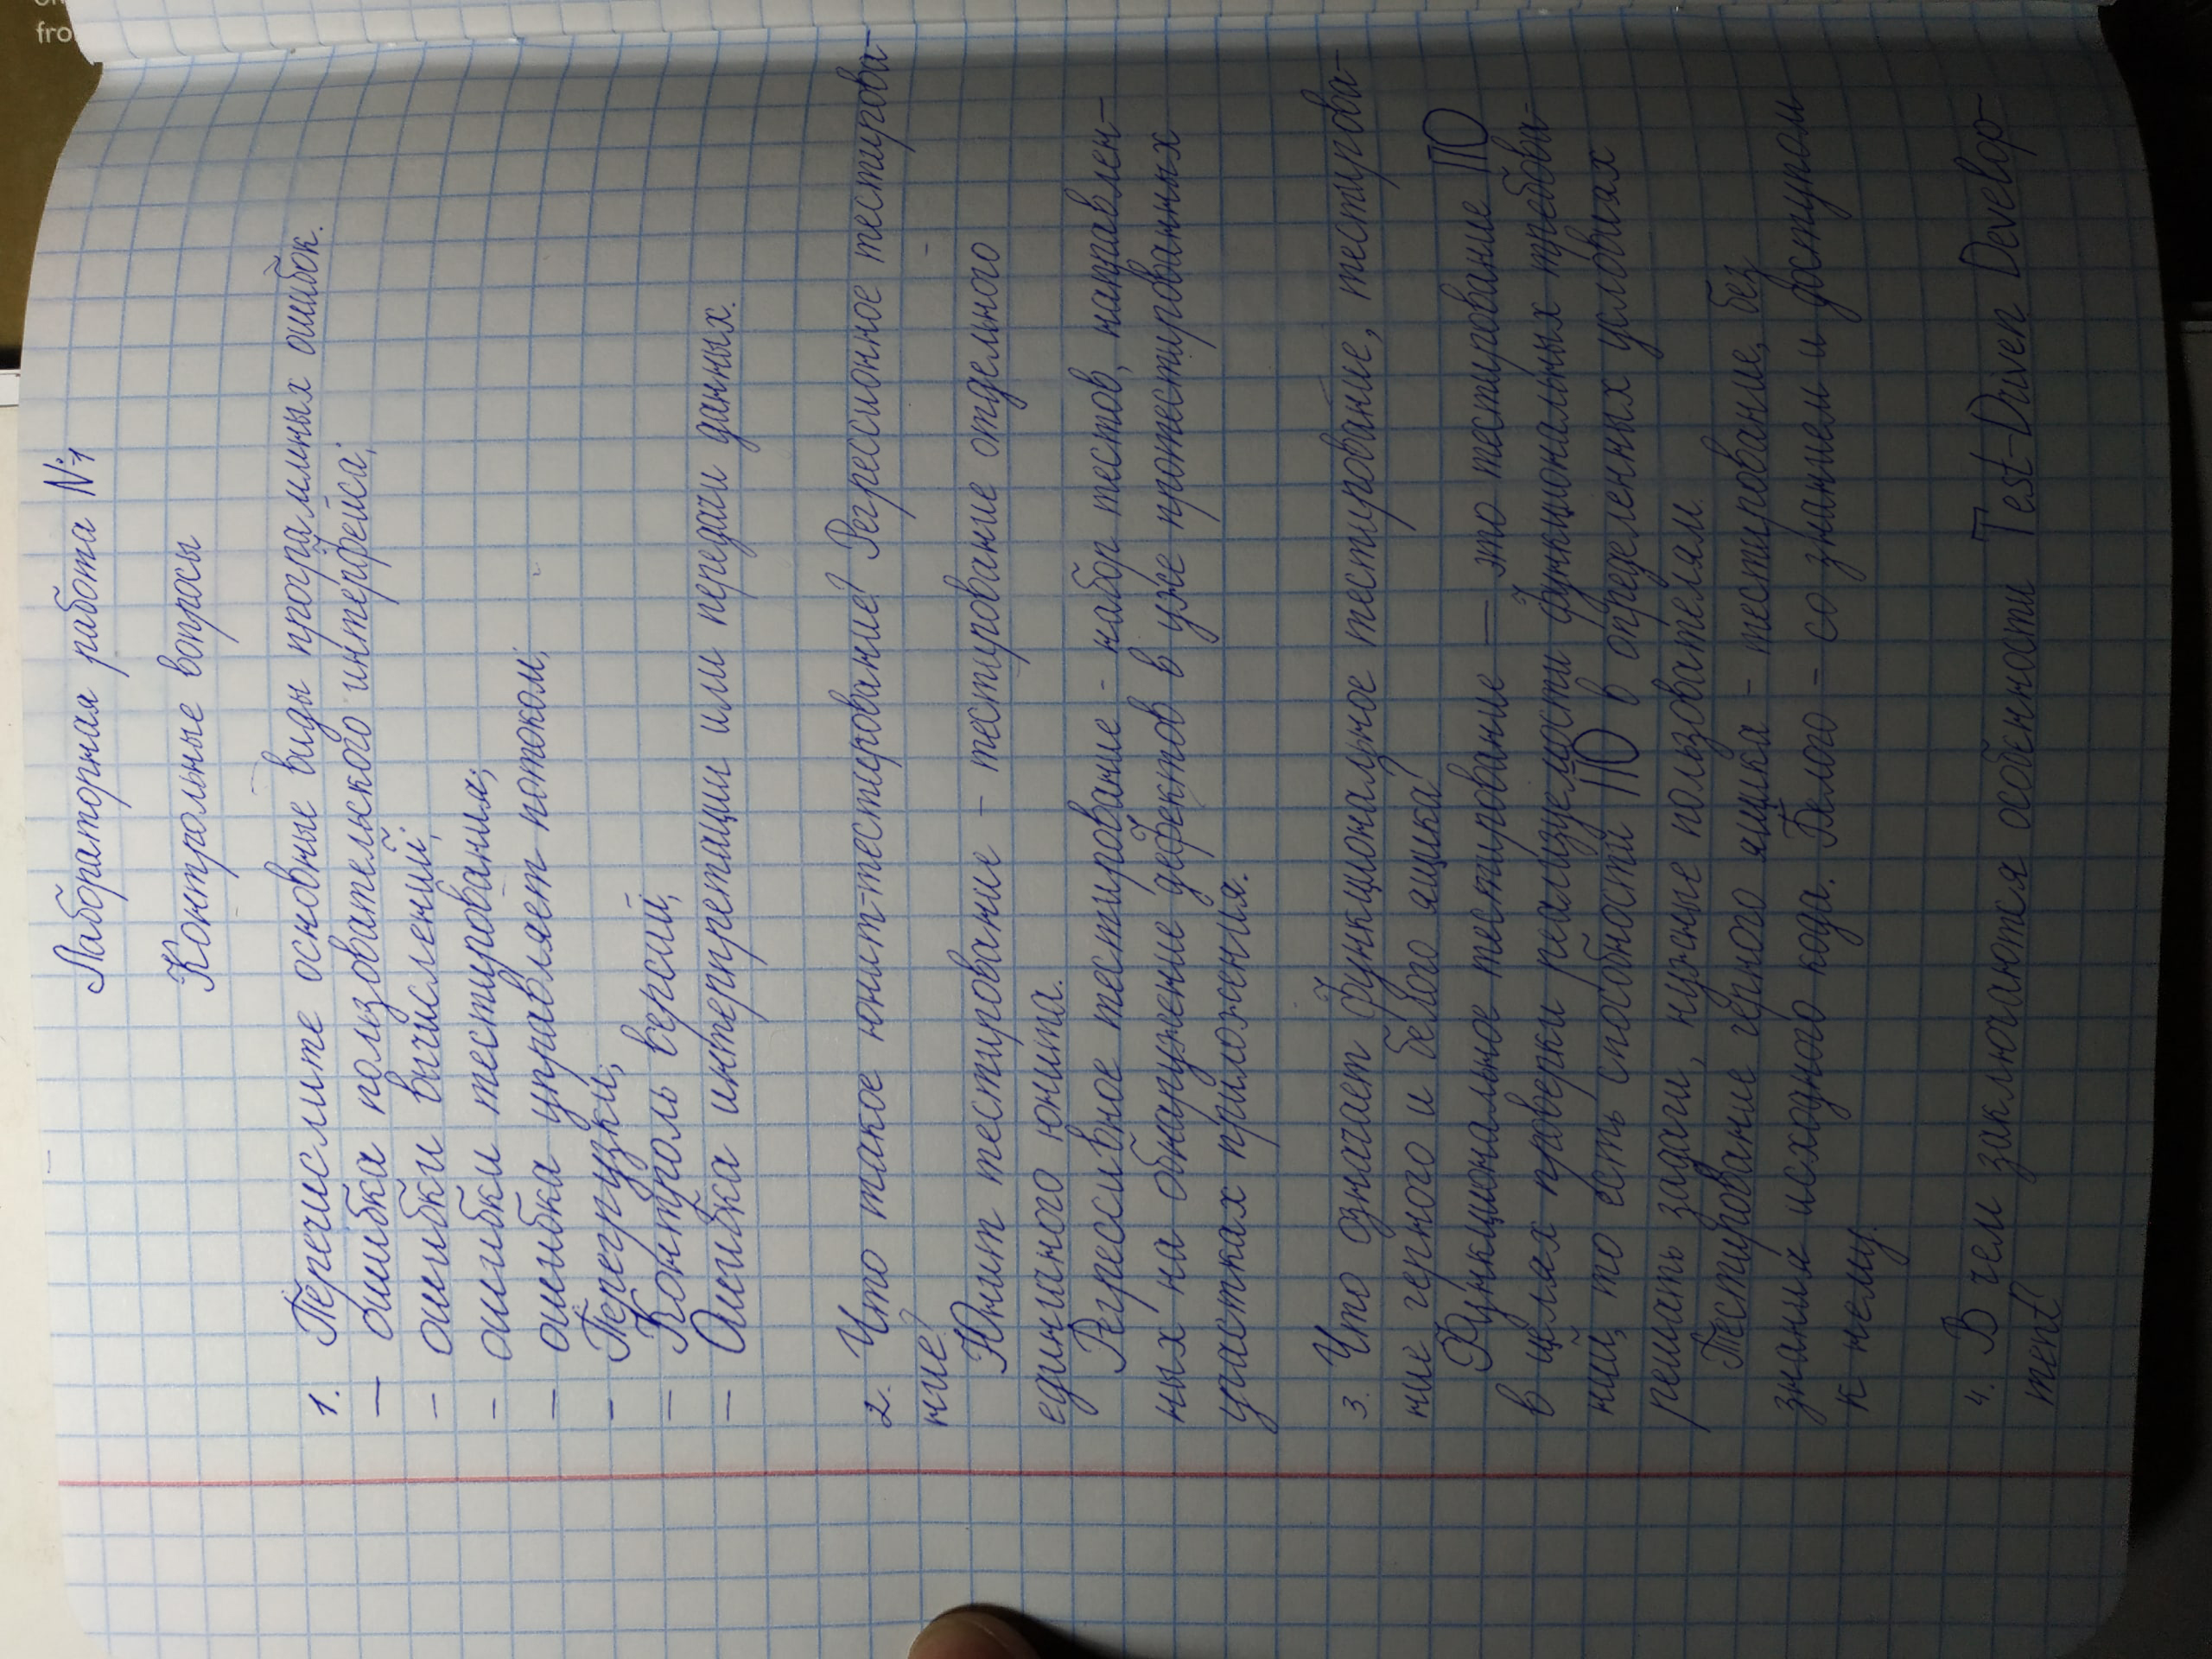 Лабораторная работа №1
Контрольные вопросы
1. Перечислите основные виды программных ошибок.
— ошибка пользовательского интерфейса;
– ошибки вычислений;
– ошибки тестирования;
— ошибка управляет потоком;
– Перегрузки;
— Контроль версий;
— Ошибка интерпретации или передачи данных.
2. Что такое юнит-тестирование? Регрессионное тестирова-
ние?
Юнит тестирование – тестирование отдельного
единичного юнита.
Регрессивное тестирование – набор тестов, направлен-
ных на обнаружение дефектов в уже протестированных
участках приложения.
3. Что означает функциональное тестирование, тестирова-
ние черного и белого ящика?
Функциональное тестирование — это тестирование ПО
в целях проверки реализуемости функциональных требова-
ний, то есть способности ПО в определенных условиях
решать задачи, нужные пользователям.
Тестирование черного ящика – тестирование, без
знания исходного кода. Белого – со знанием и доступом
к нему.
4. В чем заключаются особенности Test-Driven Develop-
ment?
fro